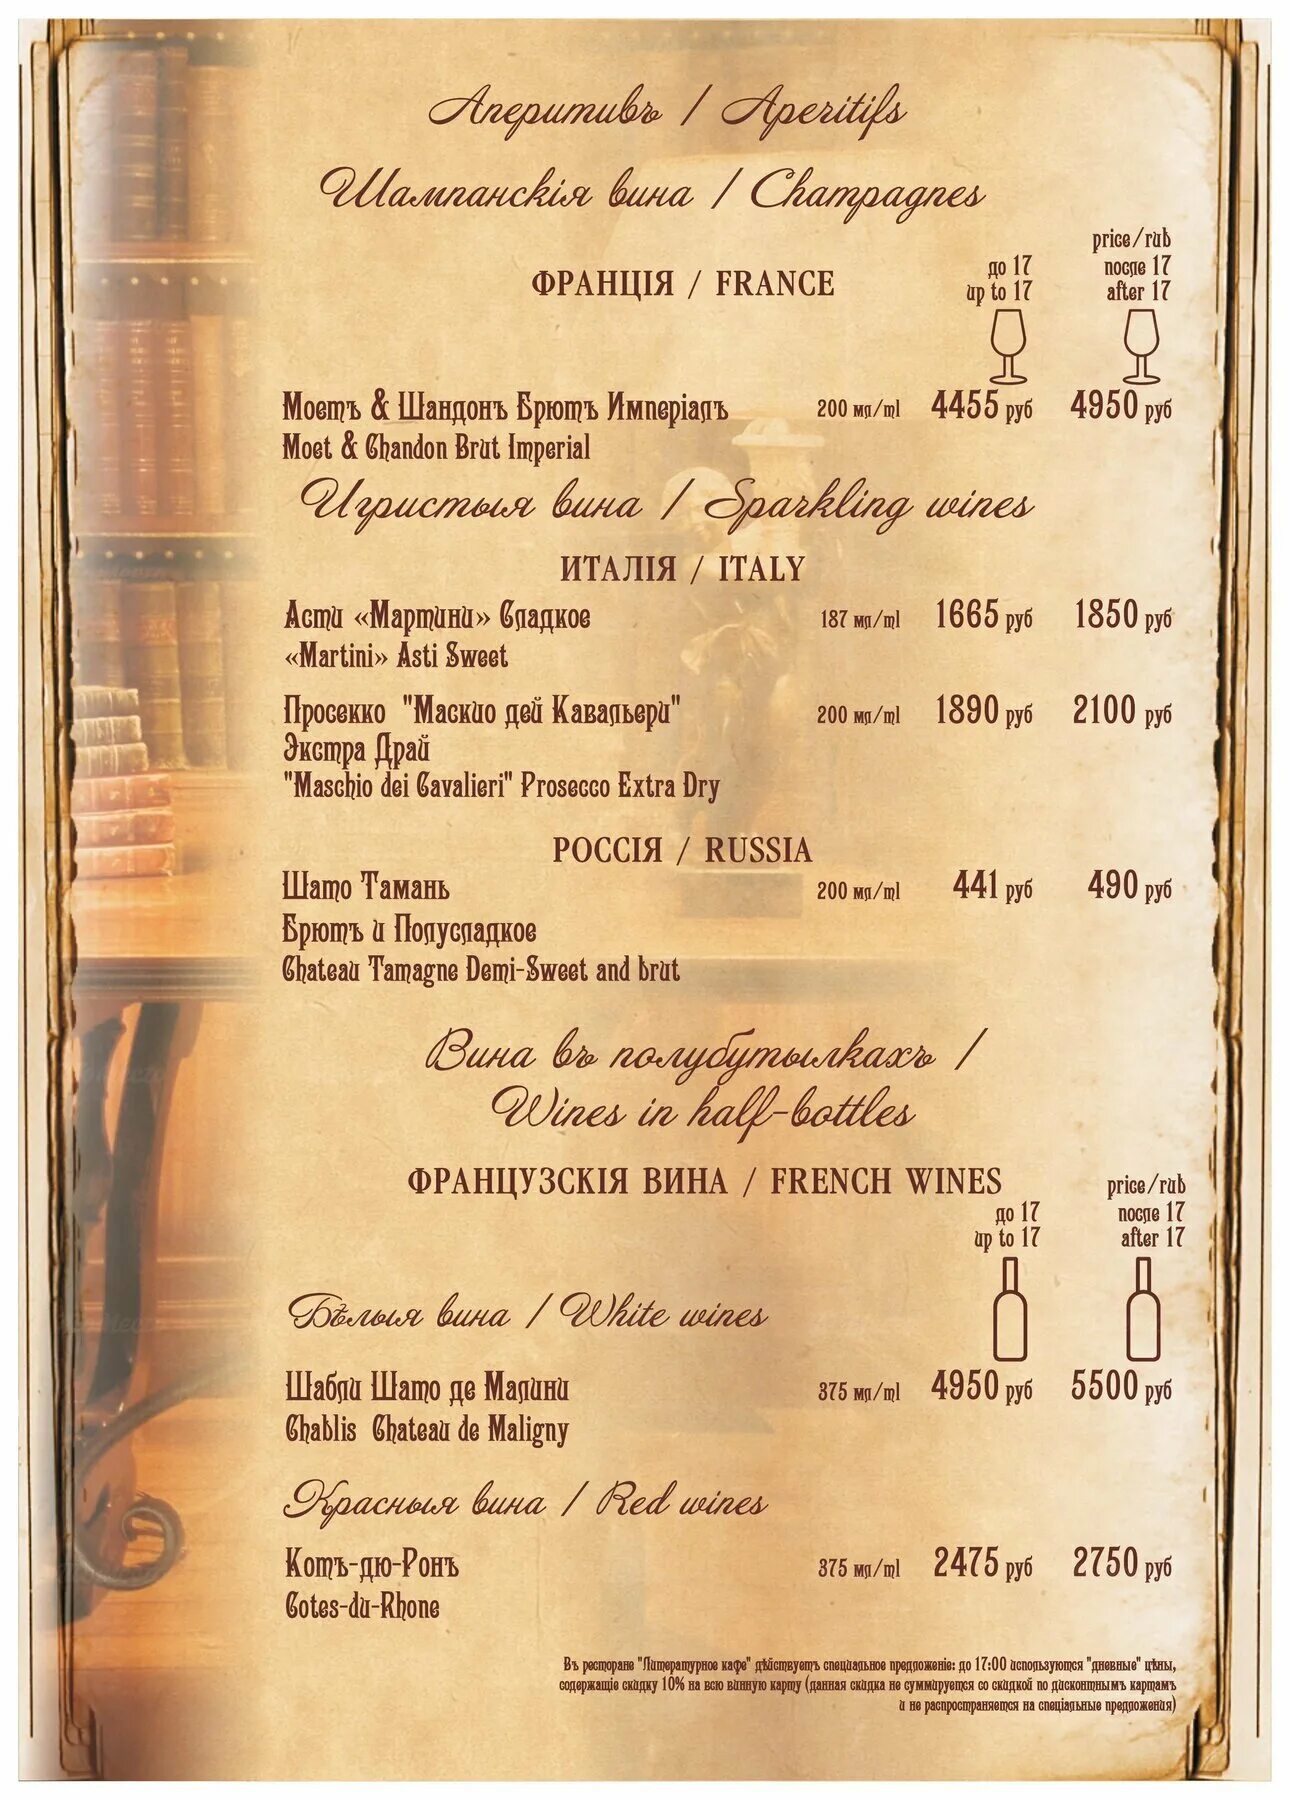 Аперитивъ / Aperitifs
Шампанскія вина / Champagnes
price/rub
ФРАНЦІЯ / FRANCE
до 17 после 17
up to 17 after 17
Моетъ & Шандонъ Брютъ Имперіалъ 200 мл/ml 4455 руб 4950 руб
Moet & Chandon Brut Imperial
Игристыя вина / Sparkling wines
ИТАЛІЯ / ITALY
Асти «Мартини» Сладкое 187 мл/ml 1665 руб 1850 руб
«Martini» Asti Sweet
Просекко "Маскио дей Кавальери" 200 мл/ml 1890 руб 2100 руб
Экстра Драй
"Maschio dei Cavalieri" Prosecco Extra Dry
РОССІЯ / RUSSIA
Шато Тамань 200 мл/ml 441 руб 490 руб
Брютъ и Полусладкое
Chateau Tamagne Demi-Sweet and brut
Вина въ полубутылкахъ /
Wines in half-bottles
ФРАНЦУЗСКІЯ ВИНА / FRENCH WINES
price/rub
до 17 после 17
up to 17 after 17
Бѣлыя вина / White wines
Шабли Шато де Малини 375 мл/ml 4950 руб 5500 руб
Chablis Chateau de Maligny
Красныя вина / Red wines
Котъ-дю-Ронъ 375 мл/ml 2475 руб 2750 руб
Cotes-du-Rhone
Въ ресторане "Литературное кафе" дѣйствуетъ специальное предложеніе: до 17:00 используются "дневные" цѣны,
содержащіе скидку 10% на всю винную карту (данная скидка не суммируется со скидкой по дисконтнымъ картамъ
и не распространяется на спеціальные предложения)